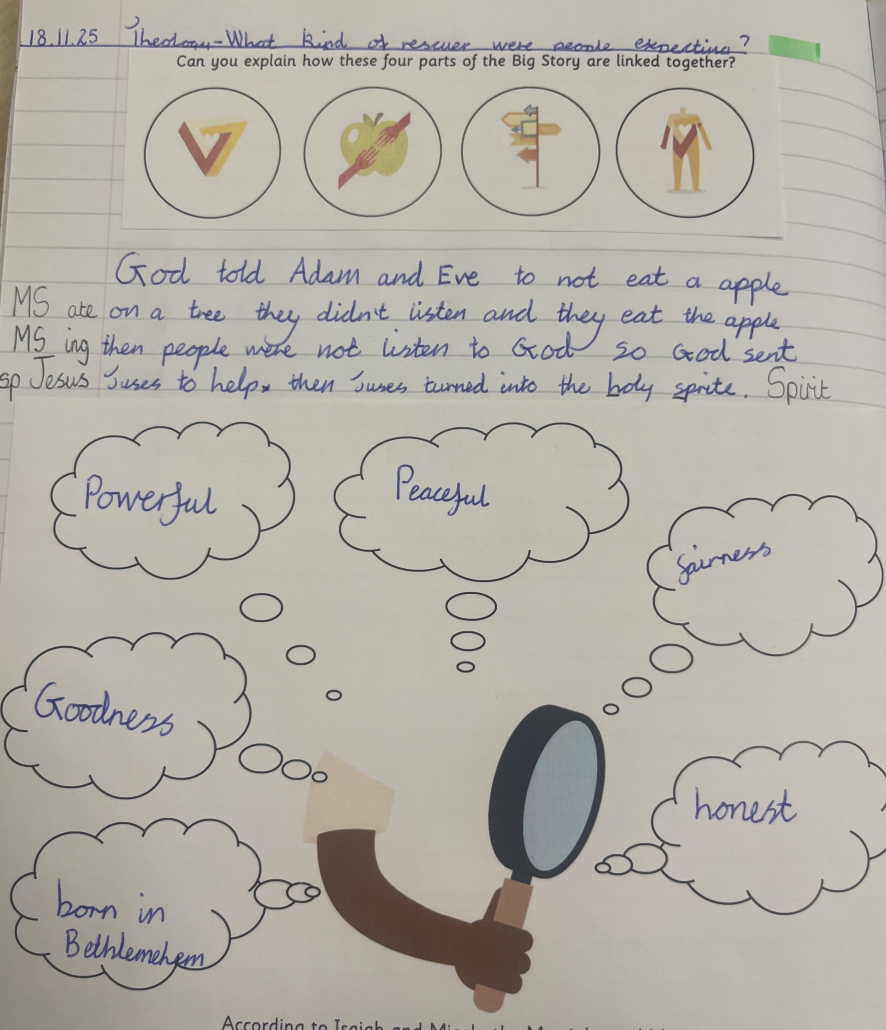 18.11.25 Theology-What kind of rescuer were people expecting?
Can you explain how these four parts of the Big Story are linked together?
God told Adam and Eve to not eat a apple
MS ate on a tree they didn't listen and they eat the apple
MS ing then people were not listen to God so God sent
sp Jesus Juses to help. then Juses turned into the holy sprite. Spirit
Powerful
Peaceful
fairness
Goodness
honest
born in
Bethlemehem
According to Isaiah and Micah, the